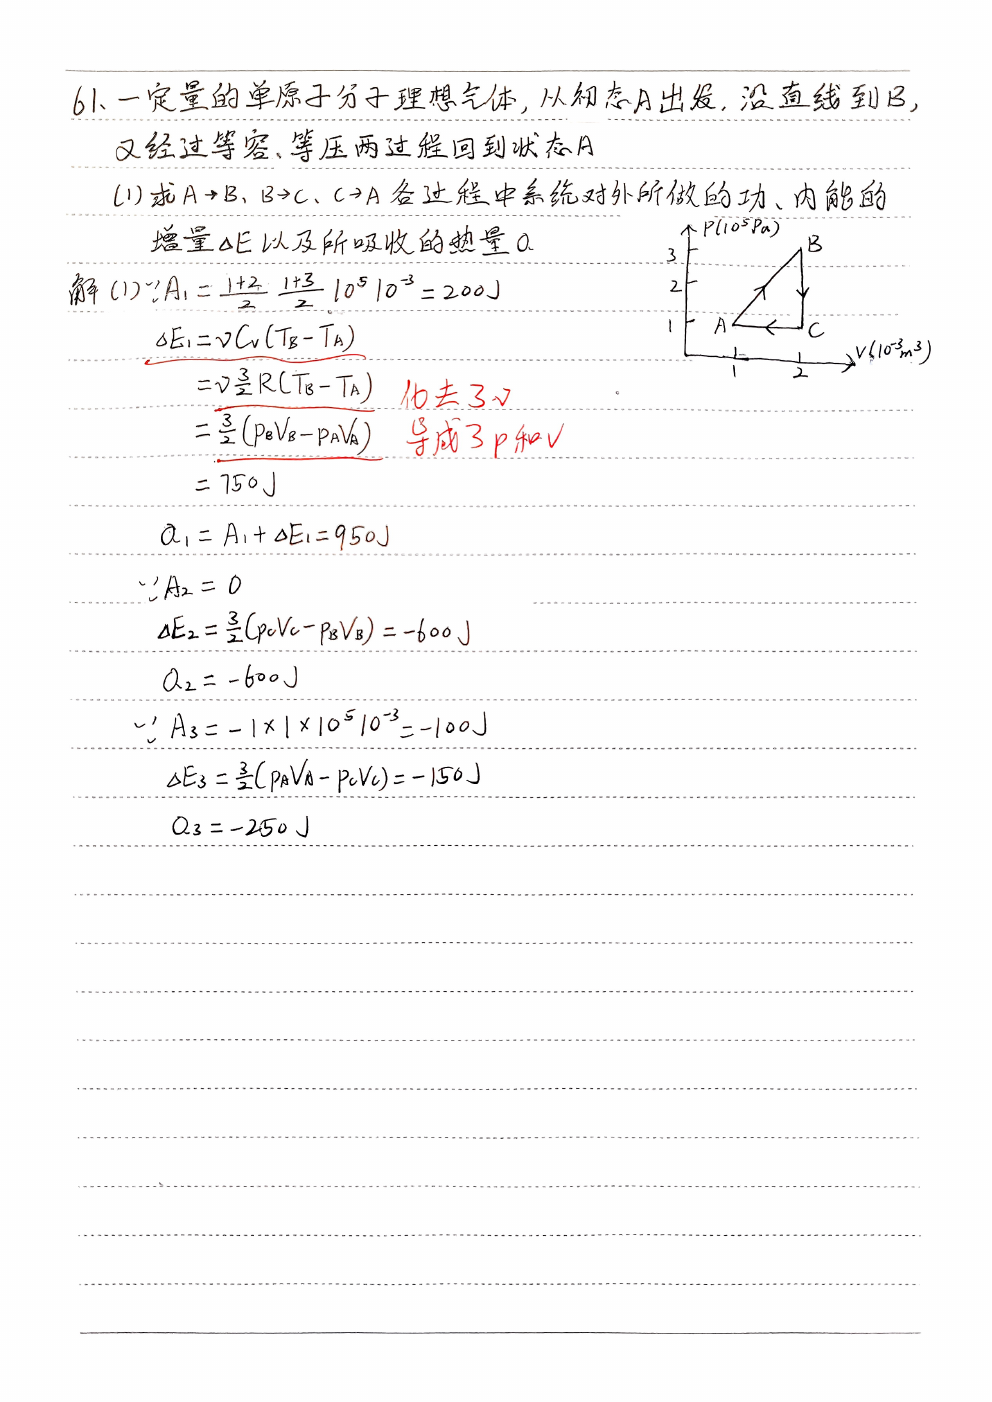 61、一定量的单原子分子理想气体,从初态A出发,沿直线到B,
又经过等容、等压两过程回到状态A
(1)求A→B、B→C、C→A各过程中系统对外所做的功、内能的
增量△E以及所吸收的热量Q
P(10⁵Pa)
3
B
2
1
A
C
V(10⁻³m³)
1
2
解(1)∵A₁=\frac{1+2}{2} \frac{1+3}{2} 10⁵10⁻³=200J
△E₁=νCv(TB-TA)
=ν\frac{3}{2}R(TB-TA) 化去了ν
=\frac{3}{2}(pBVB-pAVA) 导成了p和V
=750J
Q₁=A₁+△E₁=950J
∵A₂=0
△E₂=\frac{3}{2}(pcVc-pBVB)=-600J
Q₂=-600J
∵A₃=-1×1×10⁵10⁻³=-100J
△E₃=\frac{3}{2}(pAVA-pcVc)=-150J
Q₃=-250J